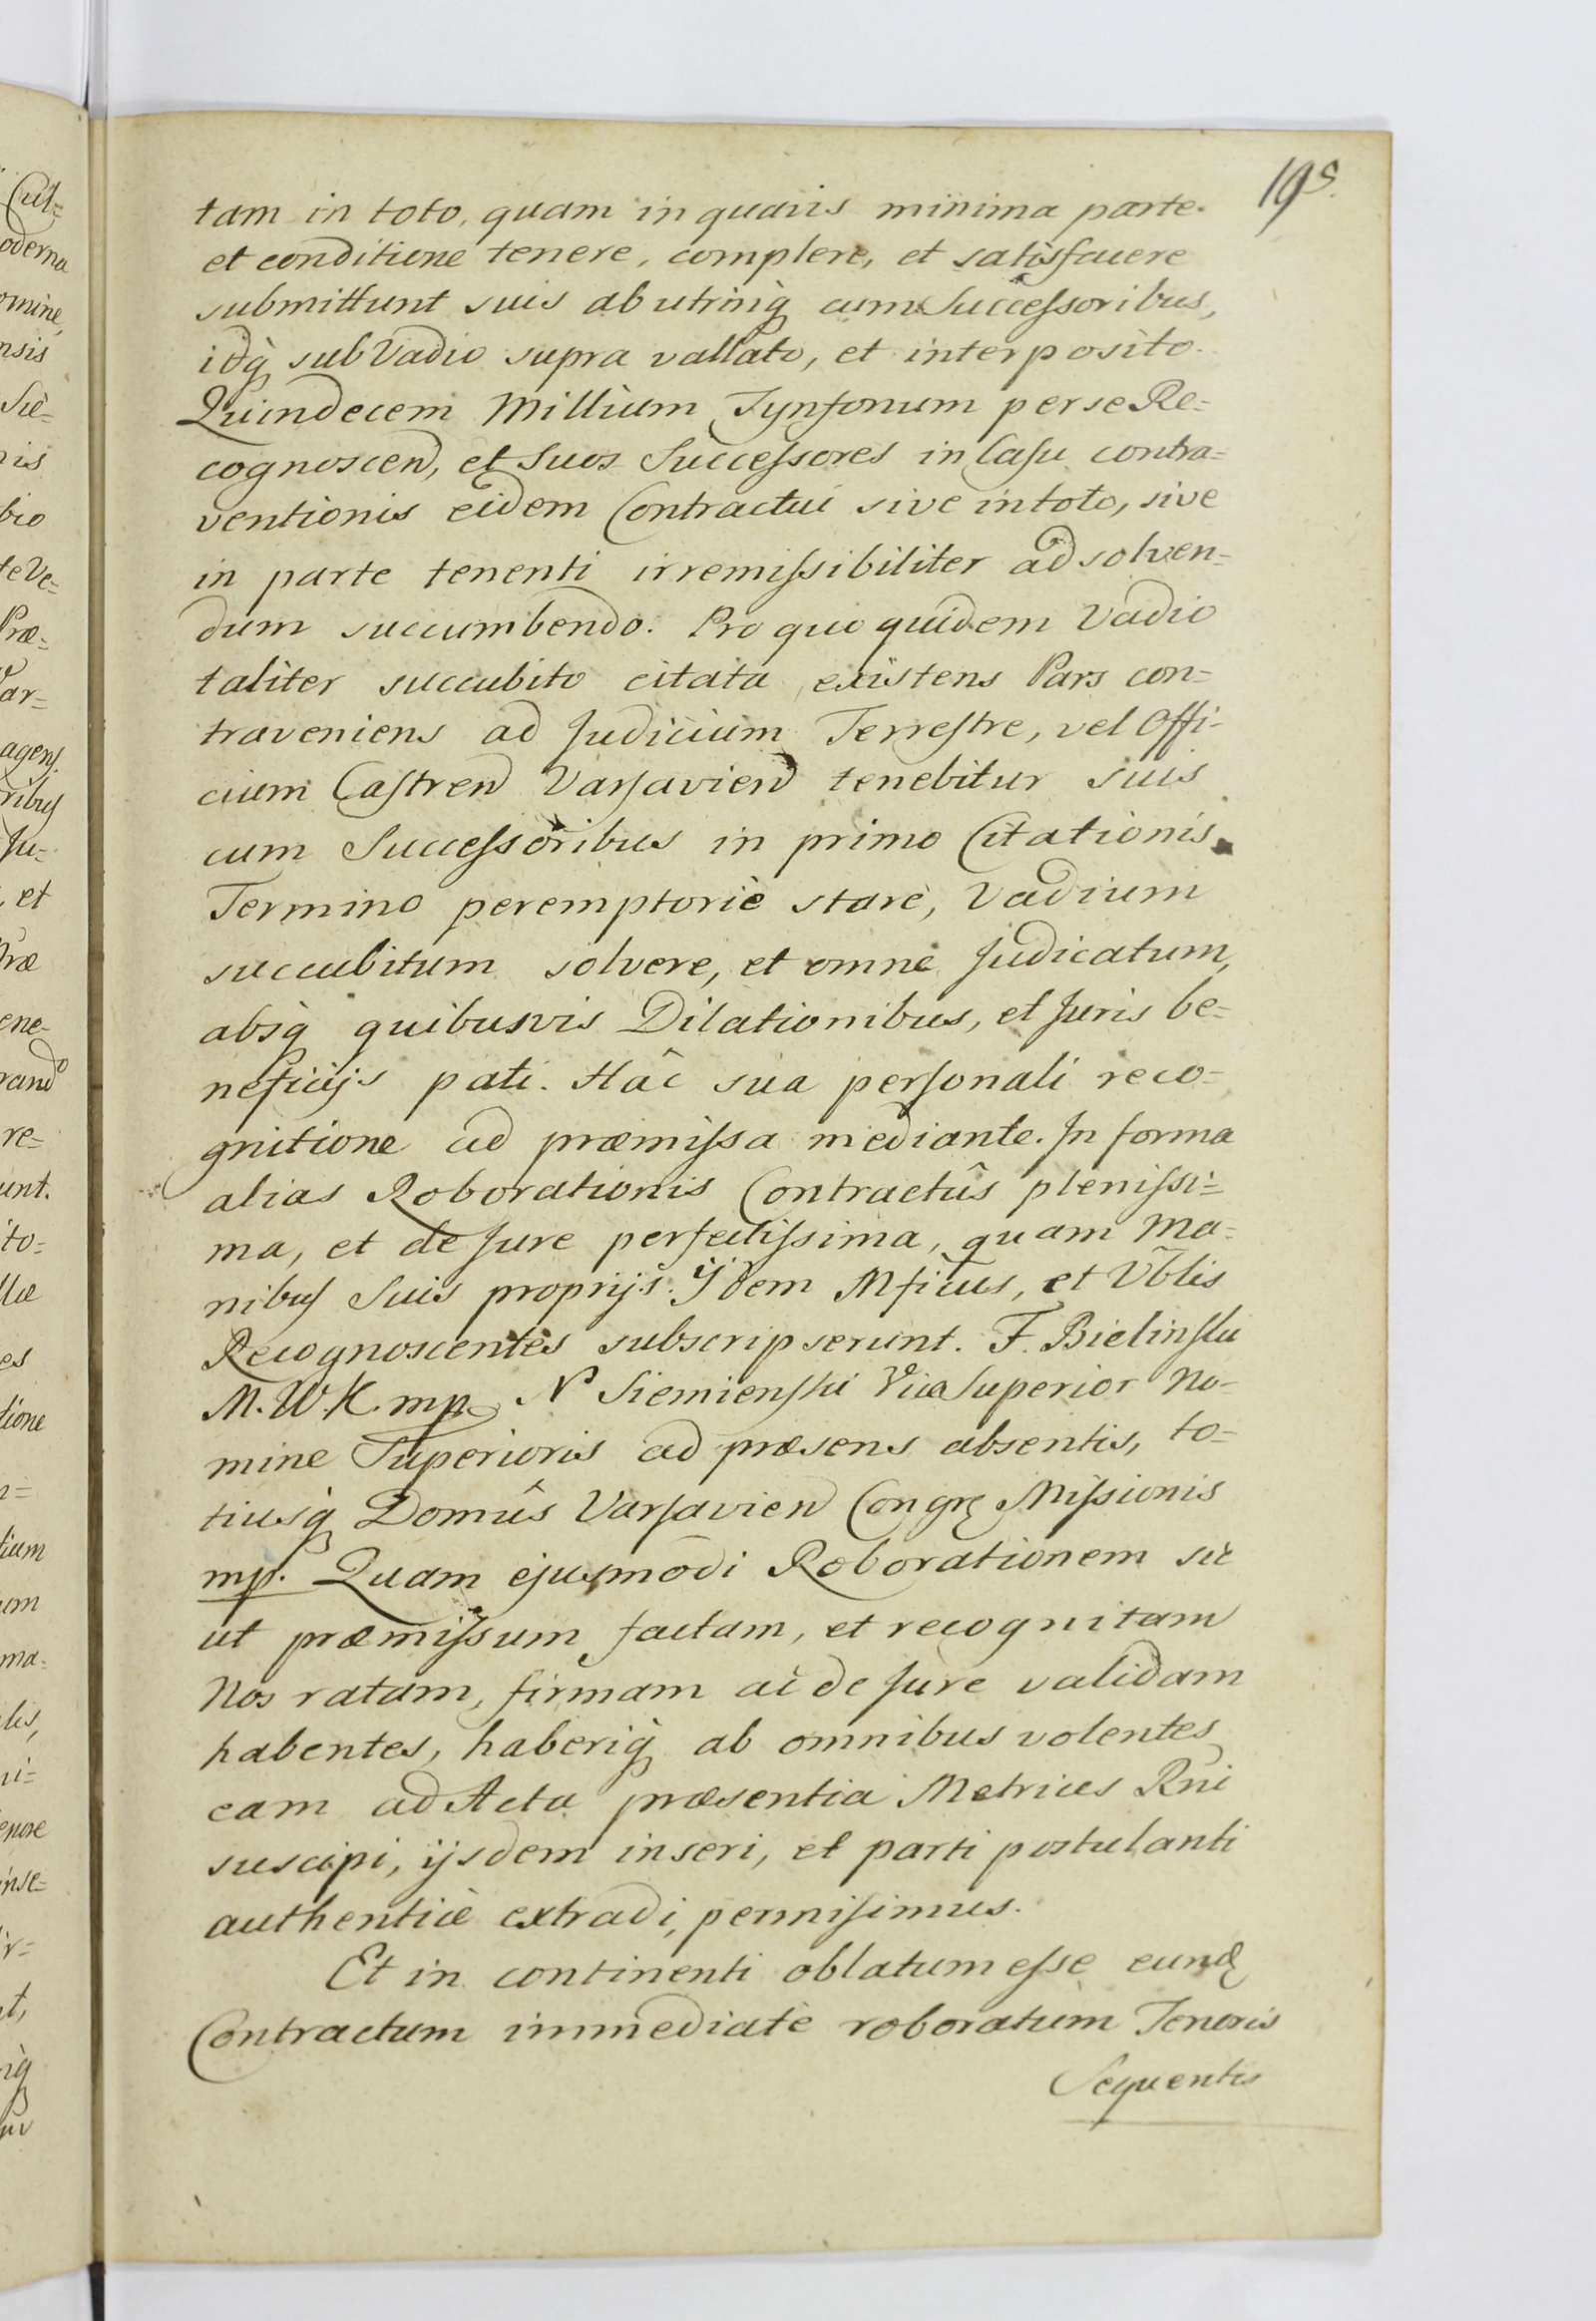 195.
tam in toto, quam in quavis minima parte.
et conditione tenere, complere, et satisfacere
submittunt suis ab utrinq cum Successoribus,
idq sub Vadio supra vallato, et interposito.
Quindecem Millium Tynfonum per se Re=
cognoscend, et Suos Successores in Casu contra=
ventionis eidem Contractui sive in toto, sive
in parte tenenti irremissibiliter ad solven=
dum succumbendo. Pro quo quidem Vadio
taliter succubito citata existens Pars con=
traveniens ad Judicium Terrestre, vel Offi=
cium Castren Varsavien tenebitur suis
cum Successoribus in primo Citationis
Termino peremptoriè stare, Vadium
succubitum solvere, et omne Judicatum,
absq quibusvis Dilationibus, et Juris be=
neficijs pati. Hâc sua personali reco=
gnitione ad præmissa mediante. In forma
alias Roborationis Contractûs plenissi=
ma, et de Jure perfectissima, quam Ma=
nibus Suis proprijs. Ijdem Mficus, et Vblis
Recognoscentes subscripserunt. F. Bielinski
M.W.K. mp. N Siemienski Vice Superior No=
mine Superioris ad præsens absentis, to=
tiusq Domûs Varsavien Congrę Missionis
mp. Quam ejusmodi Roborationem sic
ut præmissum factam, et recognitam
Nos ratam, firmam ac de Jure validam
habentes, haberiq ab omnibus volentes
eam ad Acta præsentia Metrices Rni
suscipi, ijsdem inseri, et parti postulanti
authenticè extradi, permisimus.
Et in continenti oblatum esse eund
Contractum immediatè roboratum Tenoris
Sequentis